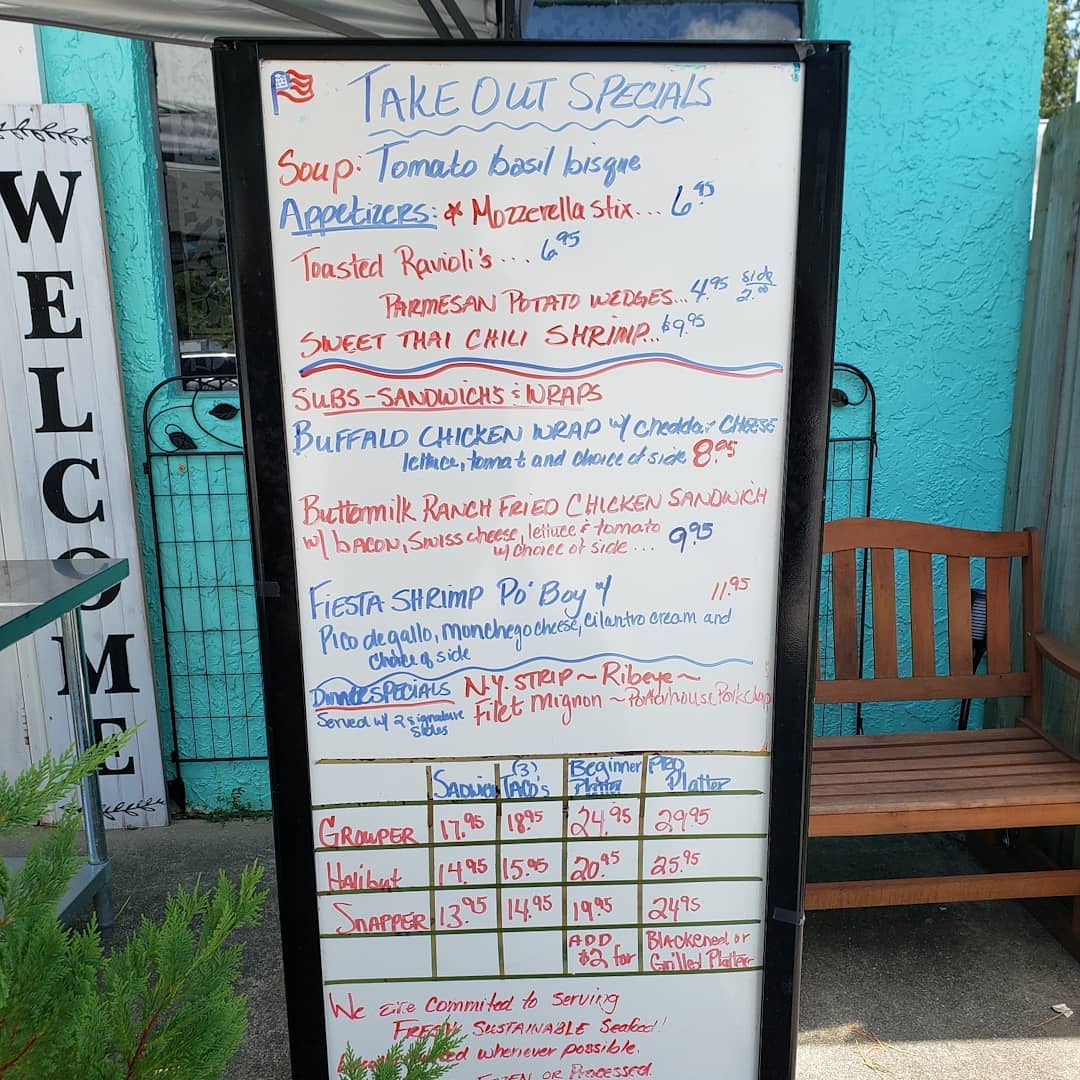 WELCOME
TAKE OUT SPECIALS
Soup: Tomato basil bisque
APPETIZERS: * Mozzerella stix... 6.95
Toasted Ravioli's ... 6.95
PARMESAN POTATO WEDGES... 4.95 side 2.00
SWEET THAI CHILI SHRIMP... $9.95
SUBS-SANDWICHS & WRAPS
BUFFALO CHICKEN WRAP w/ cheddar CHEESE
lettuce, tomat and choice of side 8.95
Buttermilk RANCH FRIED CHICKEN SANDWICH
w/ bacon, Swiss cheese, lettuce & tomato
w/ choice of side... 9.95
FIESTA SHRIMP Po' Boy w/ 11.95
Pico de gallo, monchego cheese, cilantro cream and
choice of side
Dinner SPECIALS N.Y. STRIP ~ Ribeye ~
Served w/ 2 signature sides Filet Mignon ~ Porterhouse Porkchop
SADWICH (3) TACO'S Beginner Platter PRO Platter
GROWPER 17.95 18.95 24.95 29.95
Halibut 14.95 15.95 20.95 25.95
SNAPPER 13.95 14.95 19.95 24.95
ADD $2 for Blackened or Grilled Platter
We are commited to serving
FRESH SUSTAINABLE Seafood!
whenever possible.
OR Processed.